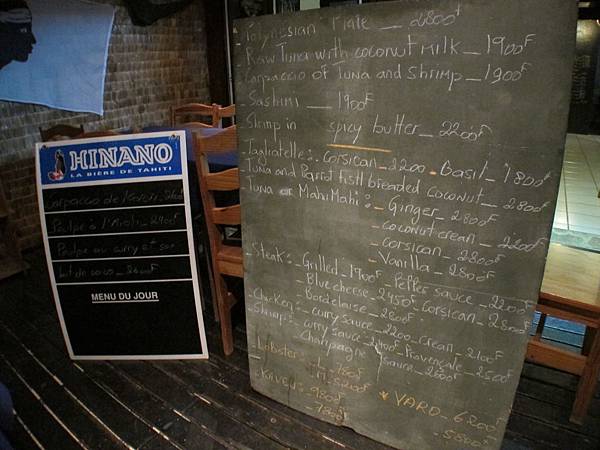 HINANO
LA BIÈRE DE TAHITI
Carpaccio de
Poulpe à l'
Poulpe au curry et son
lait de coco _ 2600F
MENU DU JOUR
Polynesian Plate __ 2800F
Raw Tuna with coconut Milk _ 1900F
Carpaccio of Tuna and shrimp _ 1900F
Sashimi ___ 1900F
Shrimp in spicy butter _ 2200F
Tagliatelle: . Corsican _ 2200 . Basil _ 1800F
Tuna and Parrot fish breaded coconut _ 2800F
Tuna or MahiMahi: - Ginger _ 2800F
- coconut cream _ 2200F
- corsican _ 2800F
- Vanilla _ 2800F
Steak: - Grilled _ 1900F Pepper sauce _ 2200F
- Blue cheese _ 2450F Corsican _ 2800F
- Bordelaise _ 2800F
Chicken: - curry sauce _ 2200 - cream _ 2100F
Shrimp: - curry sauce _ - 2500F
- Champagne sauce _ 2600F
- Lobster:
* VARO _ 6200F
- 5800F